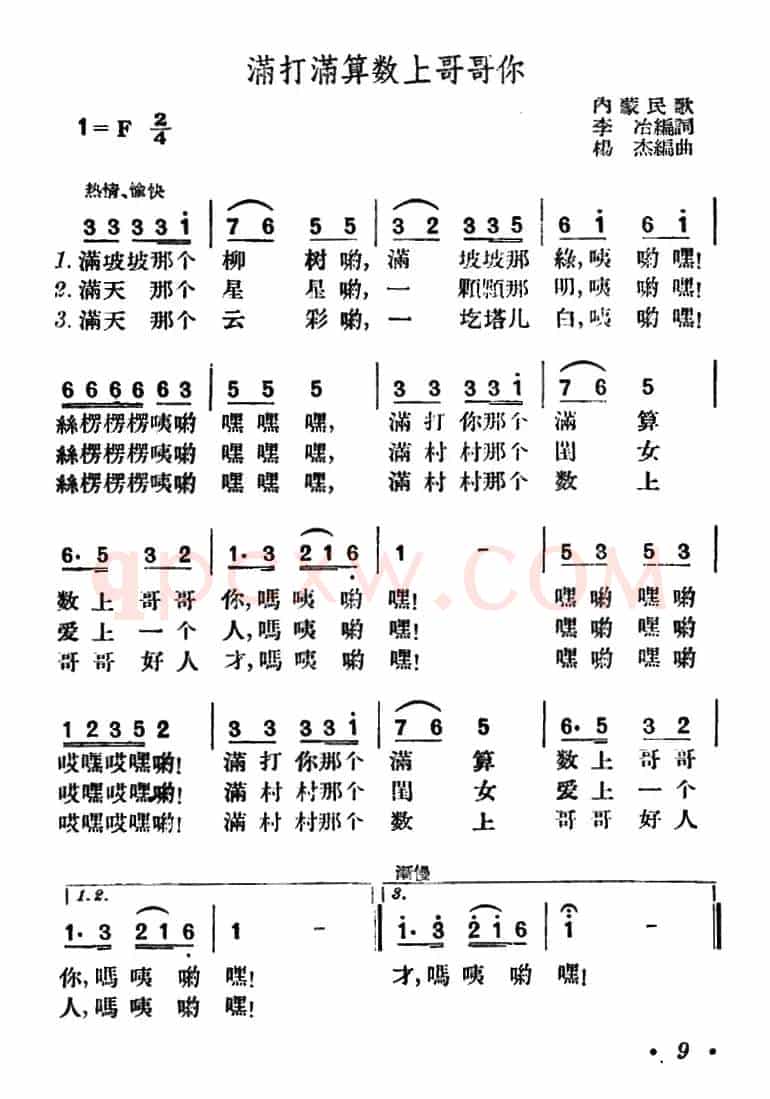 滿打滿算数上哥哥你
1=F 2/4
内蒙民歌
李冶編詞
楊杰編曲
热情、愉快
3 3 3 3 1 | 7 6 5 5 | 3 2 3 3 5 | 6 1 6 1 |
1.滿坡坡那个 柳 树喲, 滿 坡坡那 綠,咦 喲嘿!
2.滿天 那个 星 星喲, 一 顆顆那 明,咦 喲嘿!
3.滿天 那个 云 彩喲, 一 圪塔儿 白,咦 喲嘿!
6 6 6 6 6 3 | 5 5 5 | 3 3 3 3 1 | 7 6 5 |
絲楞楞楞咦喲 嘿嘿嘿, 滿打你那个 滿 算
絲楞楞楞咦喲 嘿嘿嘿, 滿村村那个 閨 女
絲楞楞楞咦喲 嘿嘿嘿, 滿村村那个 数 上
6· 5 3 2 | 1· 3 2 1 6 | 1 - | 5 3 5 3 |
数上哥哥 你,嗎咦喲 嘿! 嘿喲嘿喲
爱上一个 人,嗎咦喲 嘿! 嘿喲嘿喲
哥哥好人 才,嗎咦喲 嘿! 嘿喲嘿喲
1 2 3 5 2 | 3 3 3 3 1 | 7 6 5 | 6· 5 3 2 |
哎嘿哎嘿喲! 滿打你那个 滿 算 数上哥哥
哎嘿哎嘿喲! 滿村村那个 閨 女 爱上一个
哎嘿哎嘿喲! 滿村村那个 数 上 哥哥好人
漸慢
1.2. 3.
1· 3 2 1 6 | 1 - 1· 3 2 1 6 | 1 -
你,嗎咦喲 嘿! 才,嗎咦喲嘿!
人,嗎咦喲 嘿!
· 9 ·
qpcxw.COM